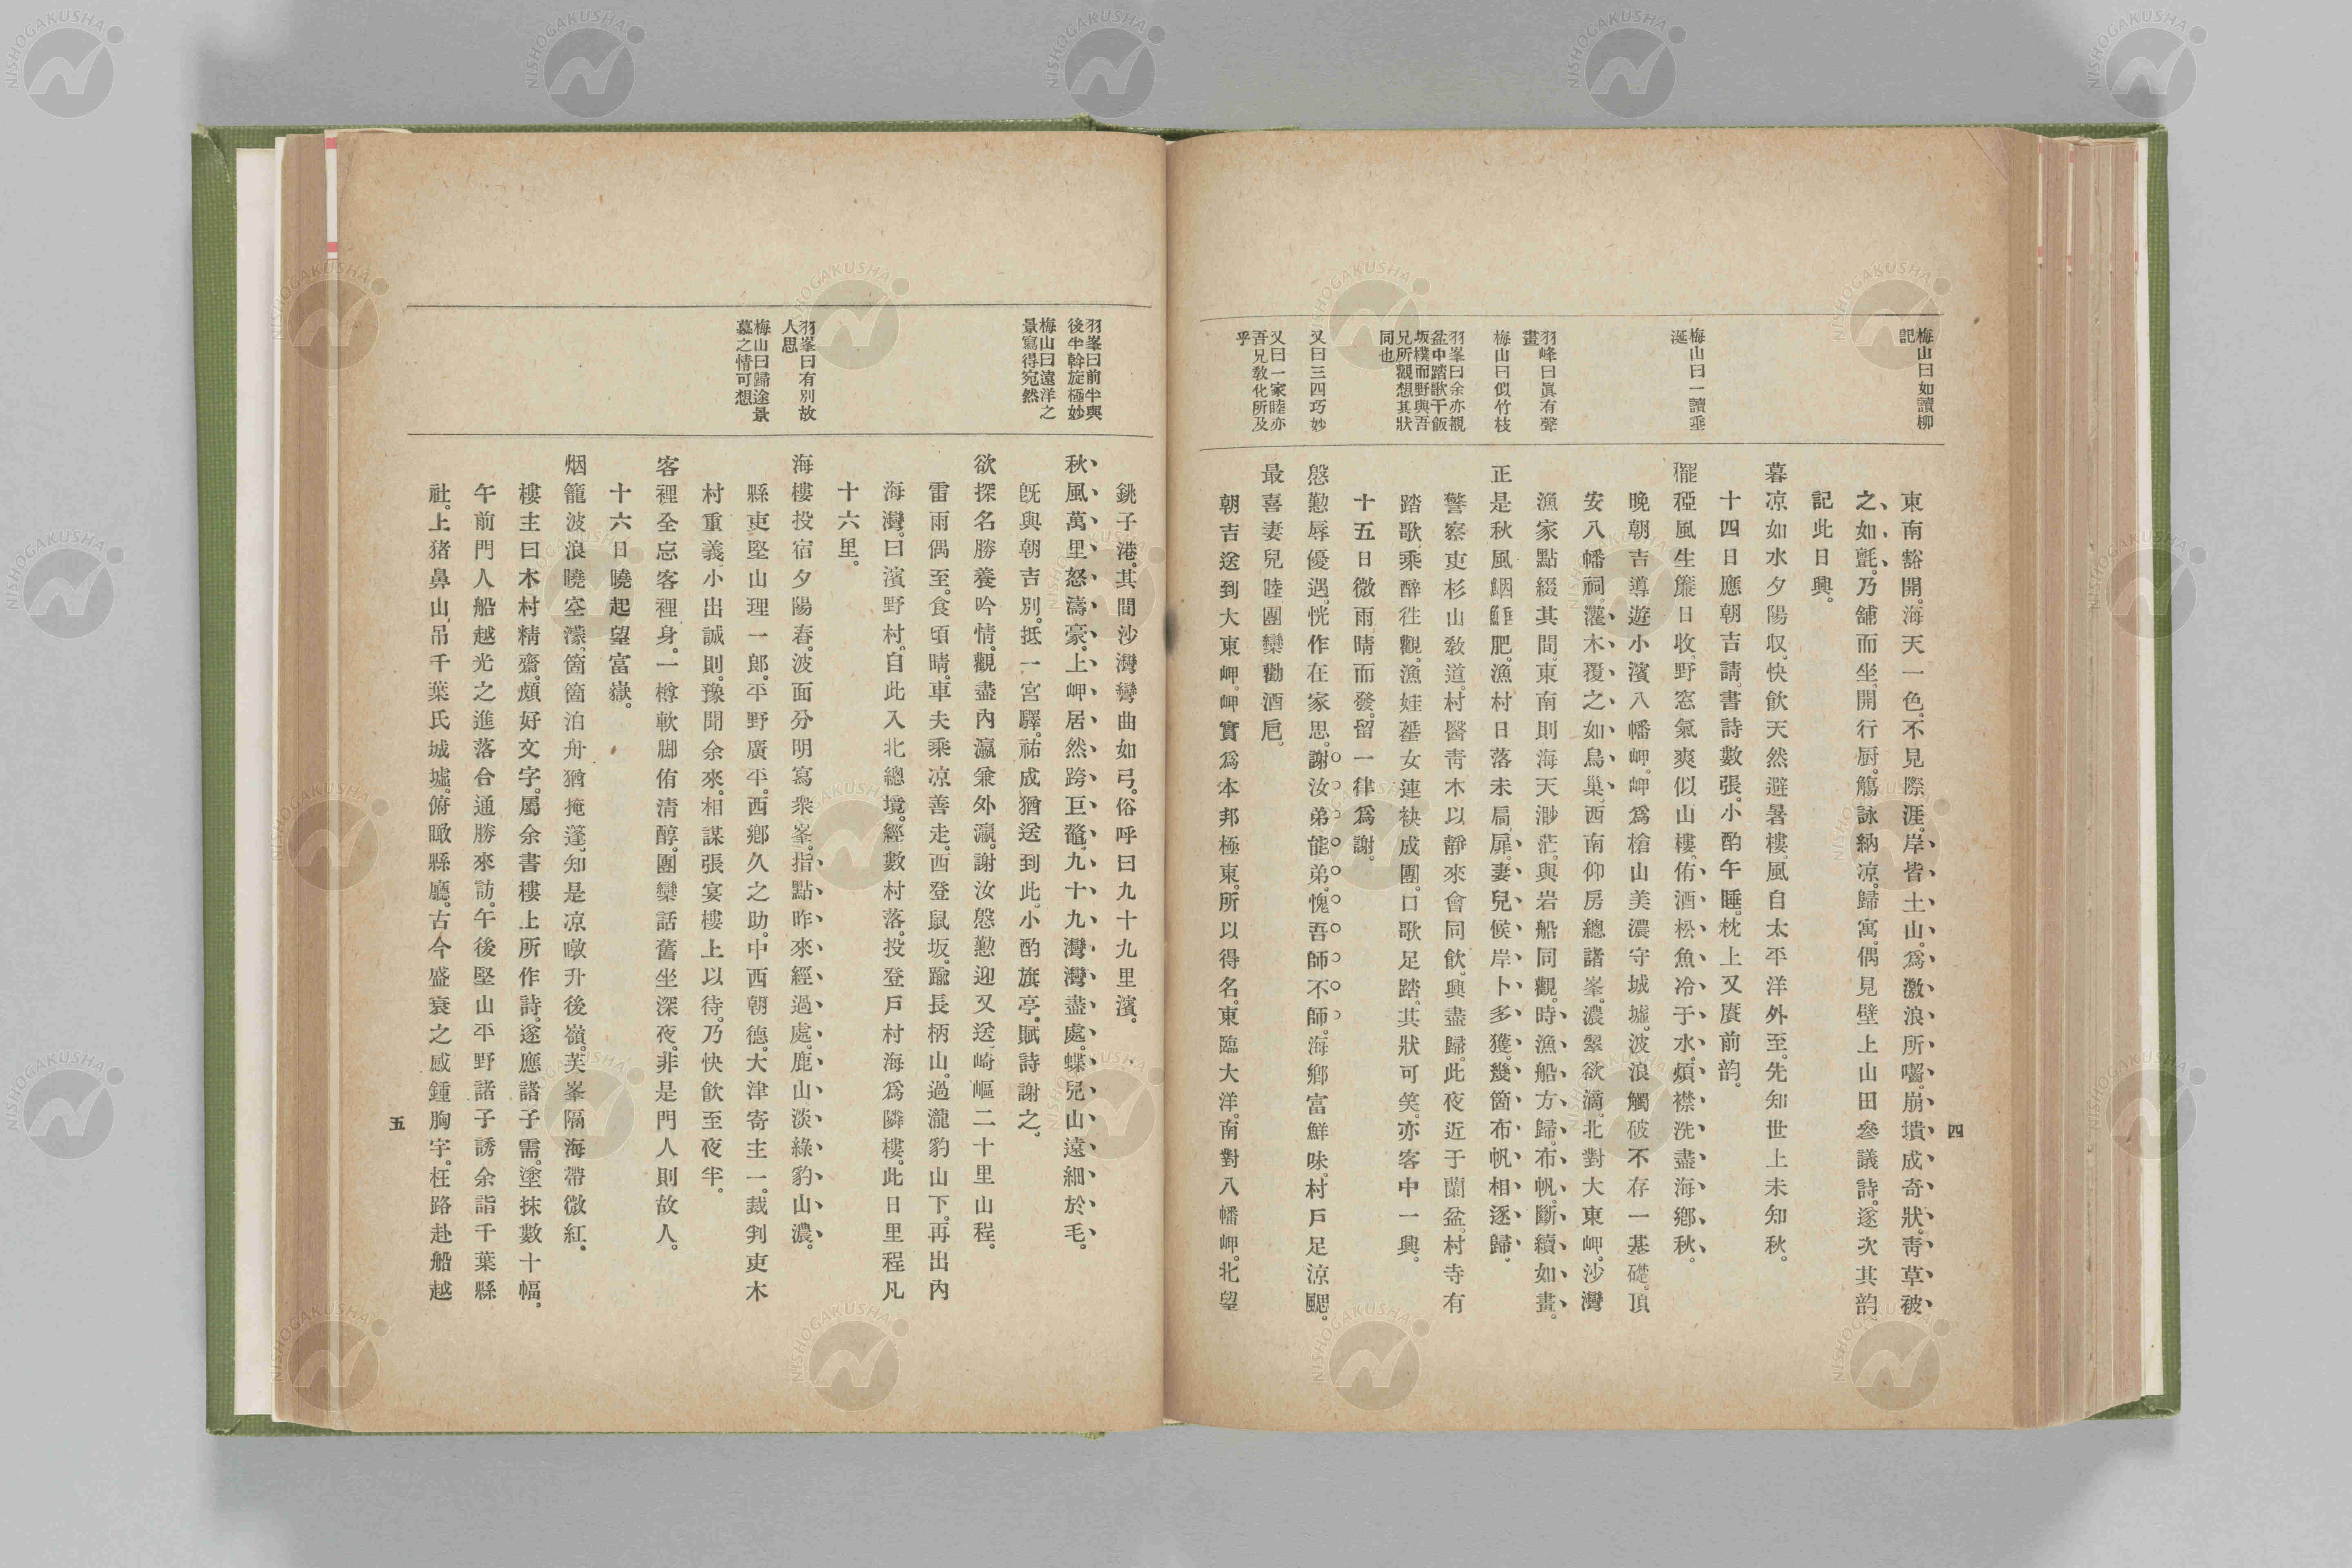 四
梅山曰如讀柳
記
梅山曰一讀垂
涎
羽峰曰眞有聲
畫
梅山曰似竹枝
羽峯曰余亦觀
盆中踏歌于飯
坂樸而野與吾
兄所觀想其狀
同也
又曰三四巧妙
又曰一家睦亦
吾兄敎化所及
乎
東南豁開。海天一色。不見際涯。岸皆土山。爲激浪所囓。崩墳成奇狀。靑草被
之如氈。乃舖而坐、開行厨。觴詠納凉。歸寓。偶見壁上山田叅議詩。遂次其韵、
記此日興。
暮凉如水夕陽収。快飮天然避暑樓。風自太平洋外至。先知世上未知秋。
十四日應朝吉請、書詩數張。小酌午睡。枕上又賡前韵。
䆉稏風生簾日收。野窓氣爽似山樓。侑酒松魚冷于水。煩襟洗盡海鄕秋。
晩朝吉導遊小濱八幡岬。岬爲槍山美濃守城墟。波浪觸破不存一基礎。頂
安八幡祠。灌木覆之如鳥巢、西南仰房總諸峯。濃翠欲滴。北對大東岬。沙灣
漁家點綴其間。東南則海天渺茫。與岩船同觀。時漁船方歸。布帆斷續如畫。
正是秋風鰮肥。漁村日落未扃扉。妻兒候岸卜多獲。幾箇布帆相逐歸。
警察吏杉山敎道。村醫靑木以靜來會同飮。興盡歸。此夜近于蘭盆。村寺有
踏歌。乘醉徃觀。漁娃蜑女連袂成團。口歌足踏。其狀可笑。亦客中一興。
十五日微雨晴而發。留一律爲謝。
慇懃辱優遇。恍作在家思。謝汝弟能弟。愧吾師不師。海鄕富鮮味。村戶足涼颸。
最喜妻兒睦。團欒勸酒巵。
朝吉送到大東岬。岬實爲本邦極東。所以得名。東臨大洋。南對八幡岬。北望
羽峯曰前半與
後半斡旋極妙
梅山曰遠洋之
景寫得宛然
羽峯曰有別故
人思
梅山曰歸途景
慕之情可想
銚子港。其間沙灣彎曲如弓。俗呼曰九十九里濱。
秋風萬里怒濤豪。上岬居然跨巨鼇。九十九灣灣盡處。蝶兒山遠細於毛。
旣與朝吉別。抵一宮驛。祐成猶送到此。小酌旗亭。賦詩謝之。
欲探名勝養吟情。觀盡內瀛兼外瀛。謝汝慇懃迎又送。崎嶇二十里山程。
雷雨偶至。食頃晴。車夫乘凉善走。西登鼠坂。踰長柄山。過瀧豹山下。再出內
海灣。曰濱野村。自此入北總境。經數村落。投登戶村海爲隣樓。此日里程凡
十六里。
海樓投宿夕陽春。波面分明寫衆峯。指點昨來經過處。鹿山淡綠豹山濃。
縣吏堅山理一郞。平野廣平。西鄕久之助。中西朝德。大津寄主一。裁判吏木
村重義。小出誠則。豫聞余來。相謀張宴樓上以待。乃快飮至夜半。
客裡全忘客裡身。一樽軟脚侑淸醇。團欒話舊坐深夜。非是門人則故人。
十六日曉起望富嶽。
烟籠波浪曉空濛。箇箇泊舟猶掩蓬。知是凉暾升後嶺。芙峯隔海帶微紅。
樓主曰木村精齋。頗好文字。屬余書樓上所作詩。遂應諸子需。塗抹數十幅。
午前門人船越光之進落合通勝來訪。午後堅山平野諸子誘余詣千葉縣
社。上猪鼻山、吊千葉氏城墟。俯瞰縣廳。古今盛衰之感鍾胸宇。枉路赴船越
五